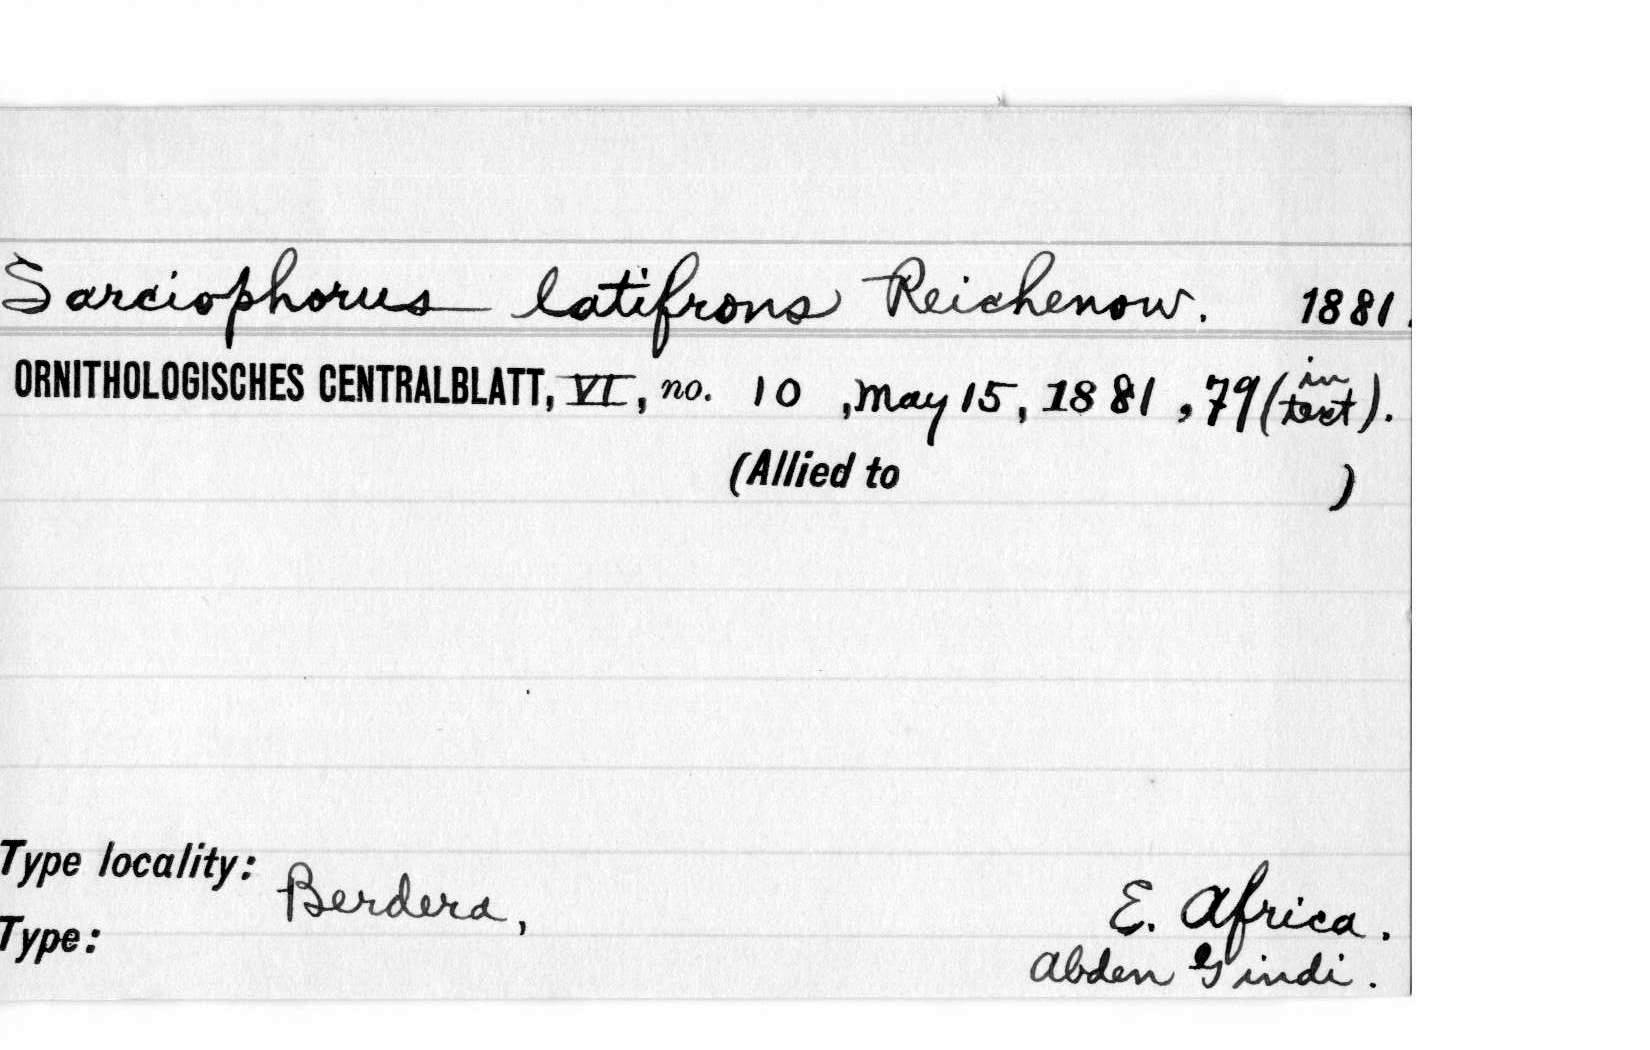 Sarciophorus latifrons Reichenow. 1881.
ORNITHOLOGISCHES CENTRALBLATT, VI, no. 10, May 15, 1881, 79 (in text).
(Allied to )
Type locality: Berdera, E. Africa.
Type: Abden Gindi.